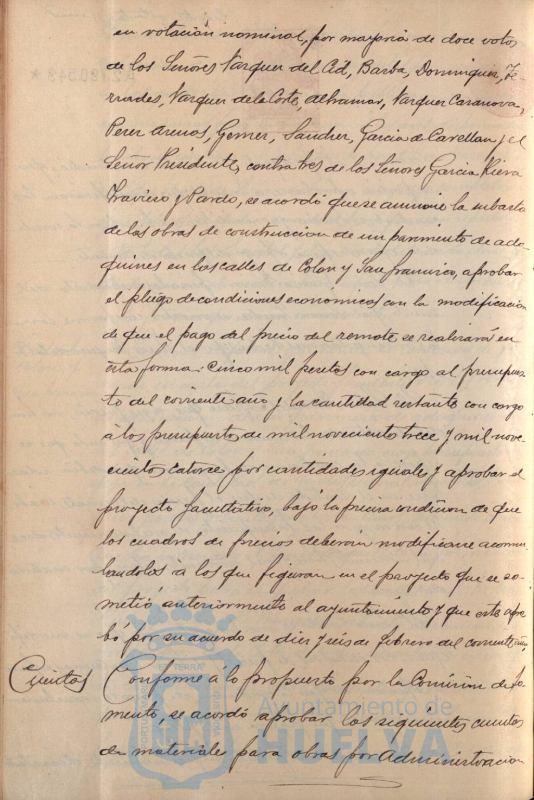 en votación nominal, por mayoría de doce votos
de los Señores Vazquez del Cid, Barba, Dominguez, Te-
rrades, Vazquez de la Corte, Alhramar, Vazquez Casanova,
Perez Arenos, Gomez, Sanchez, Garcia de Cavellan y el
Señor Presidente, contra tres de los Señores Garcia Riera
Traviero y Pardo, se acordó que se anuncie la subasta
de las obras de construccion de un pavimento de ado-
quines en las calles de Colon y San Francisco, aprobar
el pliego de condiciones economicas con la modificacion
de que el pago del precio del remate se realizará en
esta forma: Cinco mil pesetas con cargo al presupues-
to del corriente año y la cantidad restante con cargo
á los presupuestos de mil novecientos trece y mil nove-
cientos catorce por cantidades iguales y aprobar el
proyecto facultativo, bajo la precisa condicion de que
los cuadros de precios deberán modificarse acomo-
dandolos á los que figuran en el proyecto que se so-
metió anteriormente al ayuntamiento y que este apro-
bó por su acuerdo de diez y seis de febrero del corriente año.
Cuentas Conforme á lo propuesto por la Comision de Fo-
mento, se acordó aprobar las siguientes cuentas
de materiales para obras por Administracion
Ayuntamiento de
HUELVA